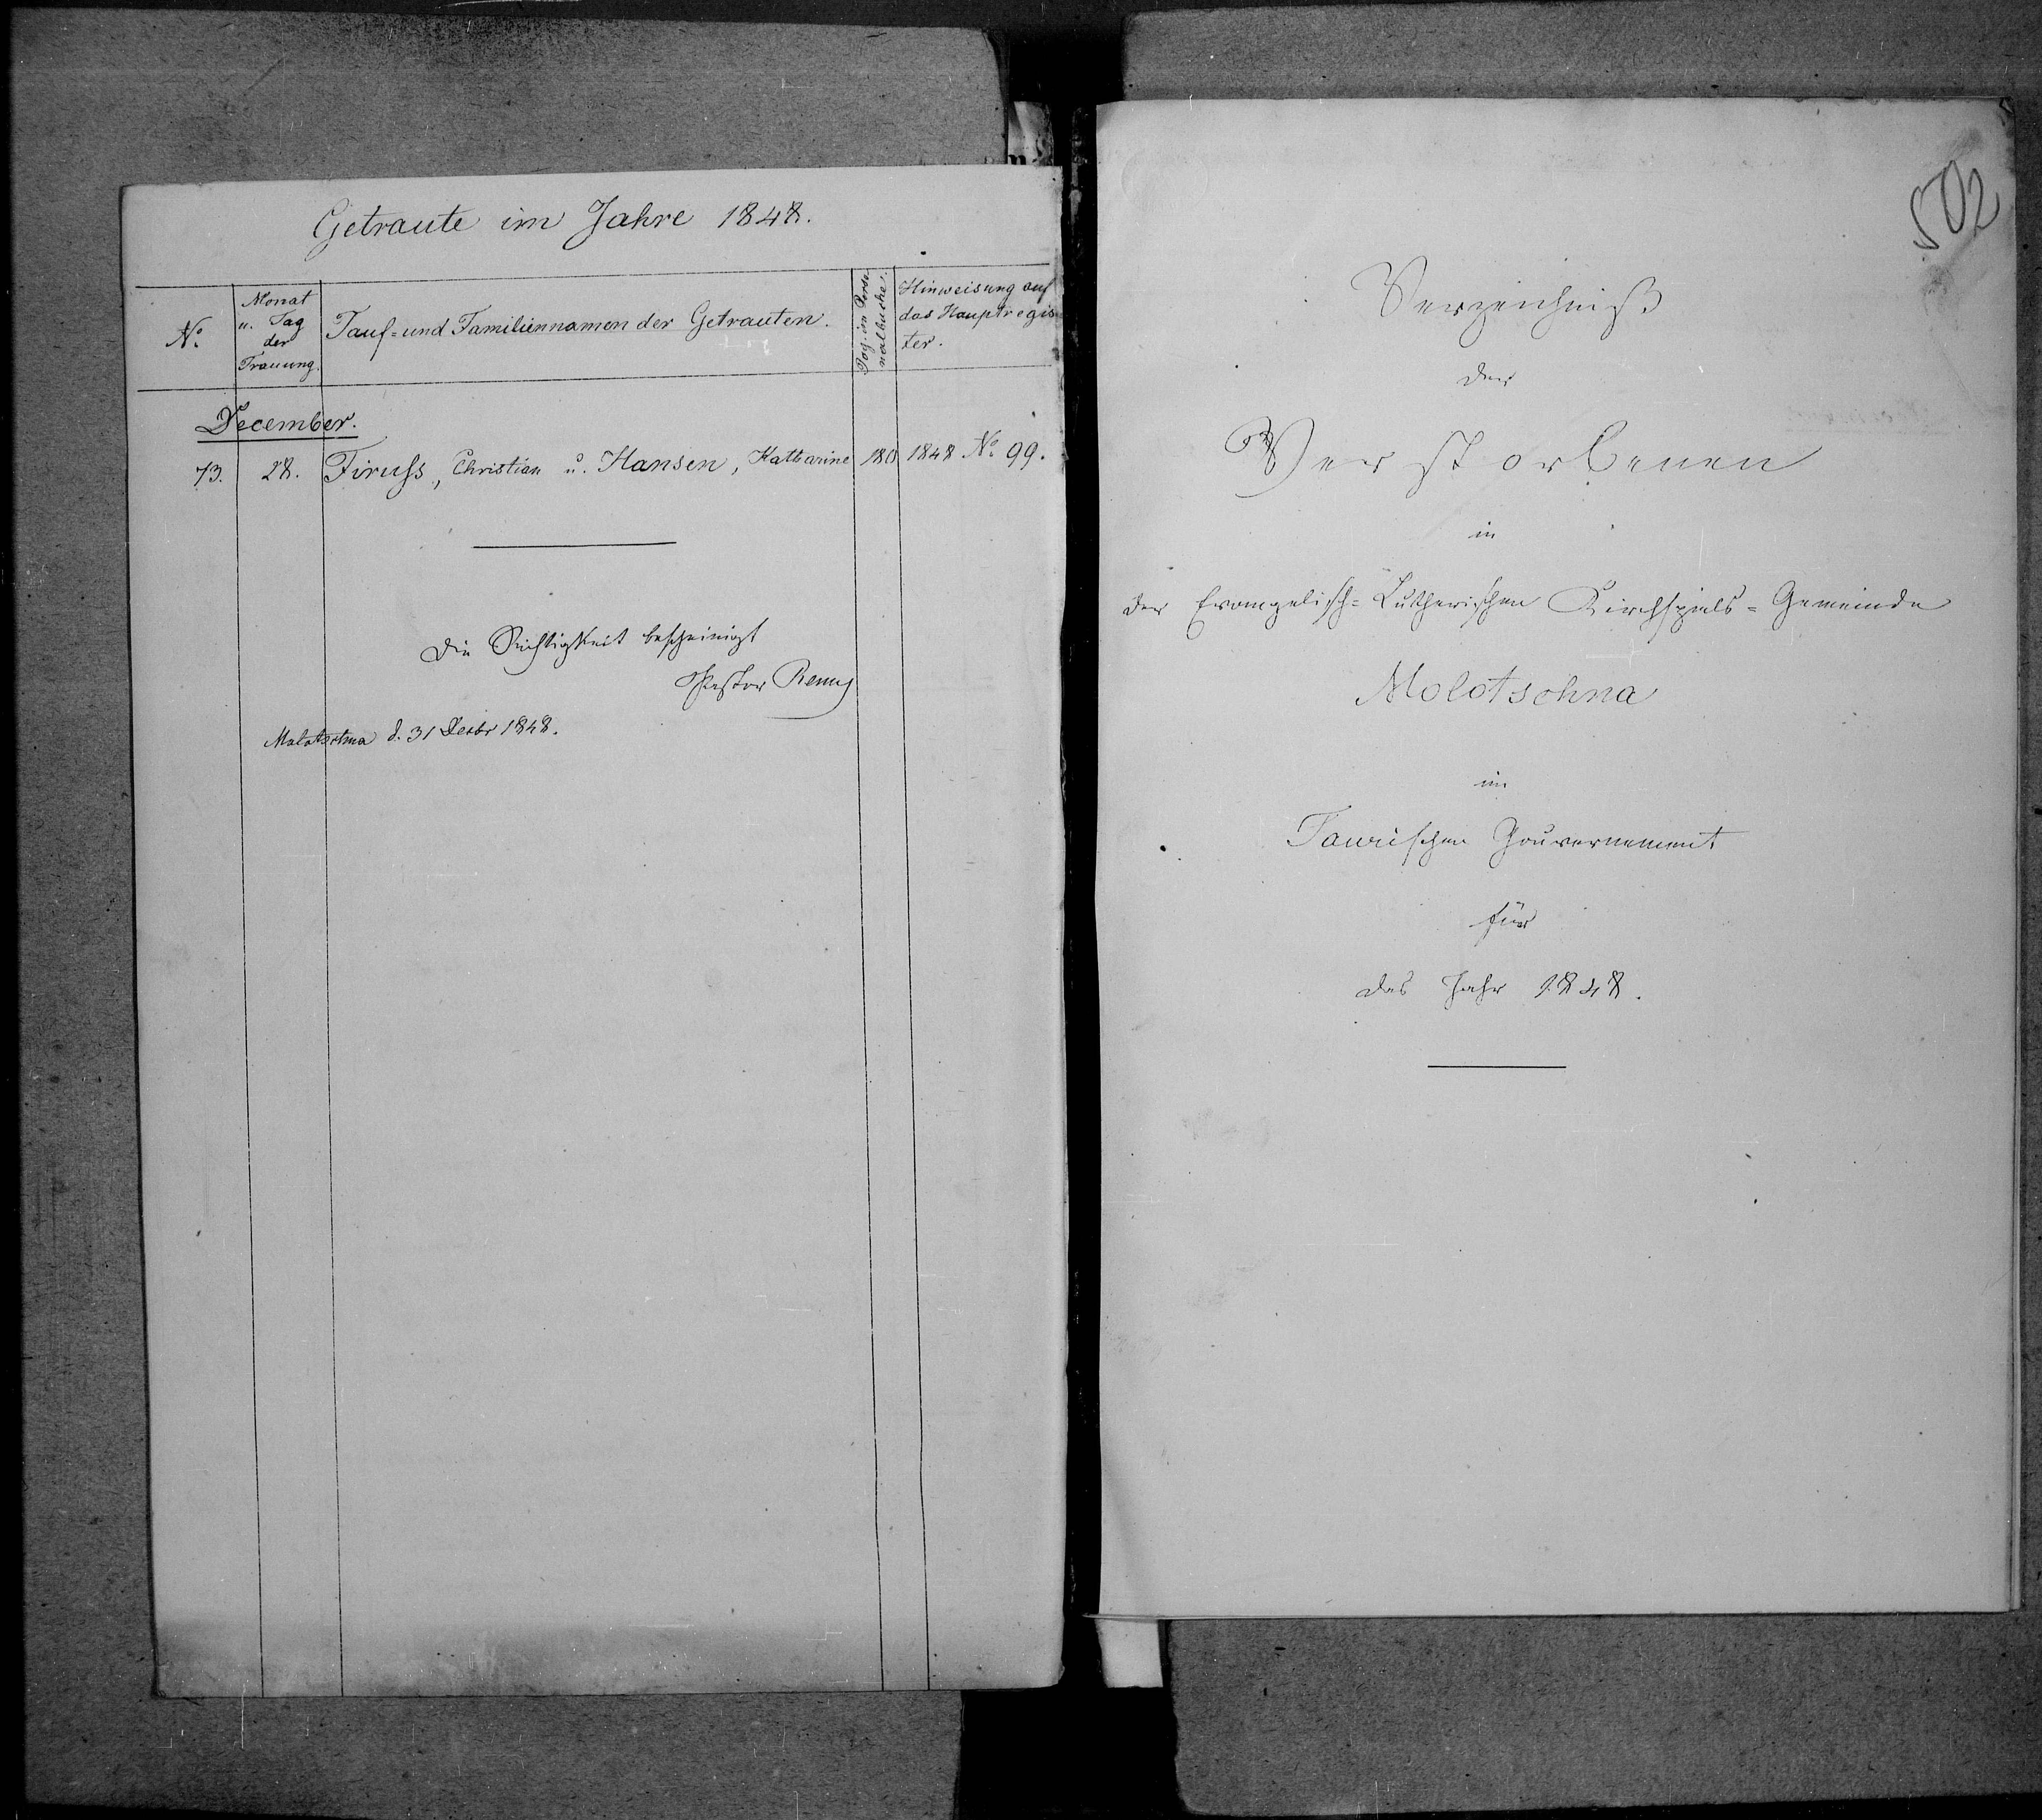 Getraute im Jahre 1848.
No
Monat
u. Tag
der
Trauung.
Tauf- und Familiennamen der Getrauten.
Pag. im Perso-
nalbuche.
Hinweisung auf
das Hauptregis
ter.
December.
73. 28. Firuss, Christian u. Hansen, Katharine 1848 No 99.
Die Richtigkeit bescheinigt
Pastor
Molotschna d. 31 Decbr 1848.
502
Verzeichniß
der
Verstorbenen
in
der Evangelisch-Lutherischen Kirchspiels-Gemeinde
Molotschna
im
Taurischen Gouvernement
für
das Jahr 1848.